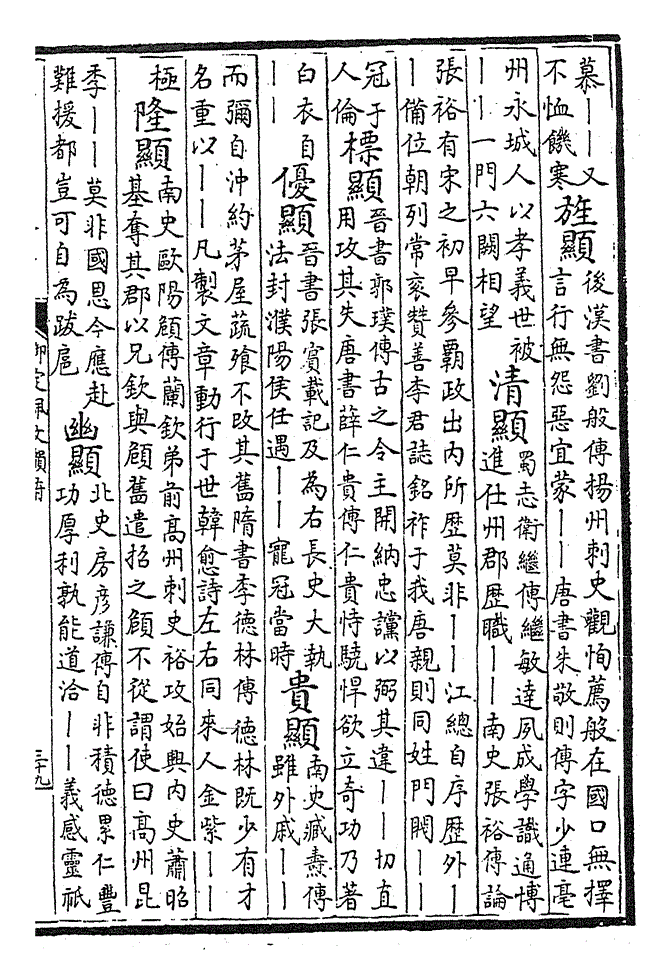 慕——又
不恤饑寒
旌顯
後漢書劉般傳揚州刺史觀恂薦般在國口無擇
言行無怨惡宜蒙——唐書朱敬則傳字少連亳
州永城人以孝義世被
——一門六闕相望
清顯
蜀志衛繼傳繼敏達夙成學識通博
進仕州郡歷職——南史張裕傳論
張裕有宋之初早參霸政出内所歷莫非——江總自序歷外—
—備位朝列常衮贊善李君誌銘祚于我唐親則同姓門閥——
冠于
人倫
標顯
晉書郭璞傳古之令主開納忠讜以弼其違——切直
用攻其失唐書薛仁貴傳仁貴恃驍悍欲立奇功乃著
白衣自
——
優顯
晉書張賓載記及為右長史大執
法封濮陽侯任遇——寵冠當時
貴顯
南史臧燾傳
雖外戚——
而彌自沖約茅屋蔬飱不改其舊隋書李德林傳德林既少有才
名重以——凡製文章動行于世韓愈詩左右同來人金紫——
極
隆顯
南史歐陽頠傳蘭欽弟前高州刺史裕攻始興内史蕭昭
基奪其郡以兄欽與頠舊遣招之頠不從謂使曰高州昆
季——莫非國恩今應赴
難援都豈可自為跋扈
幽顯
北史房彦謙傳自非積德累仁豐
功厚利孰能道洽——義感靈祇
御定佩文韻府
三十九